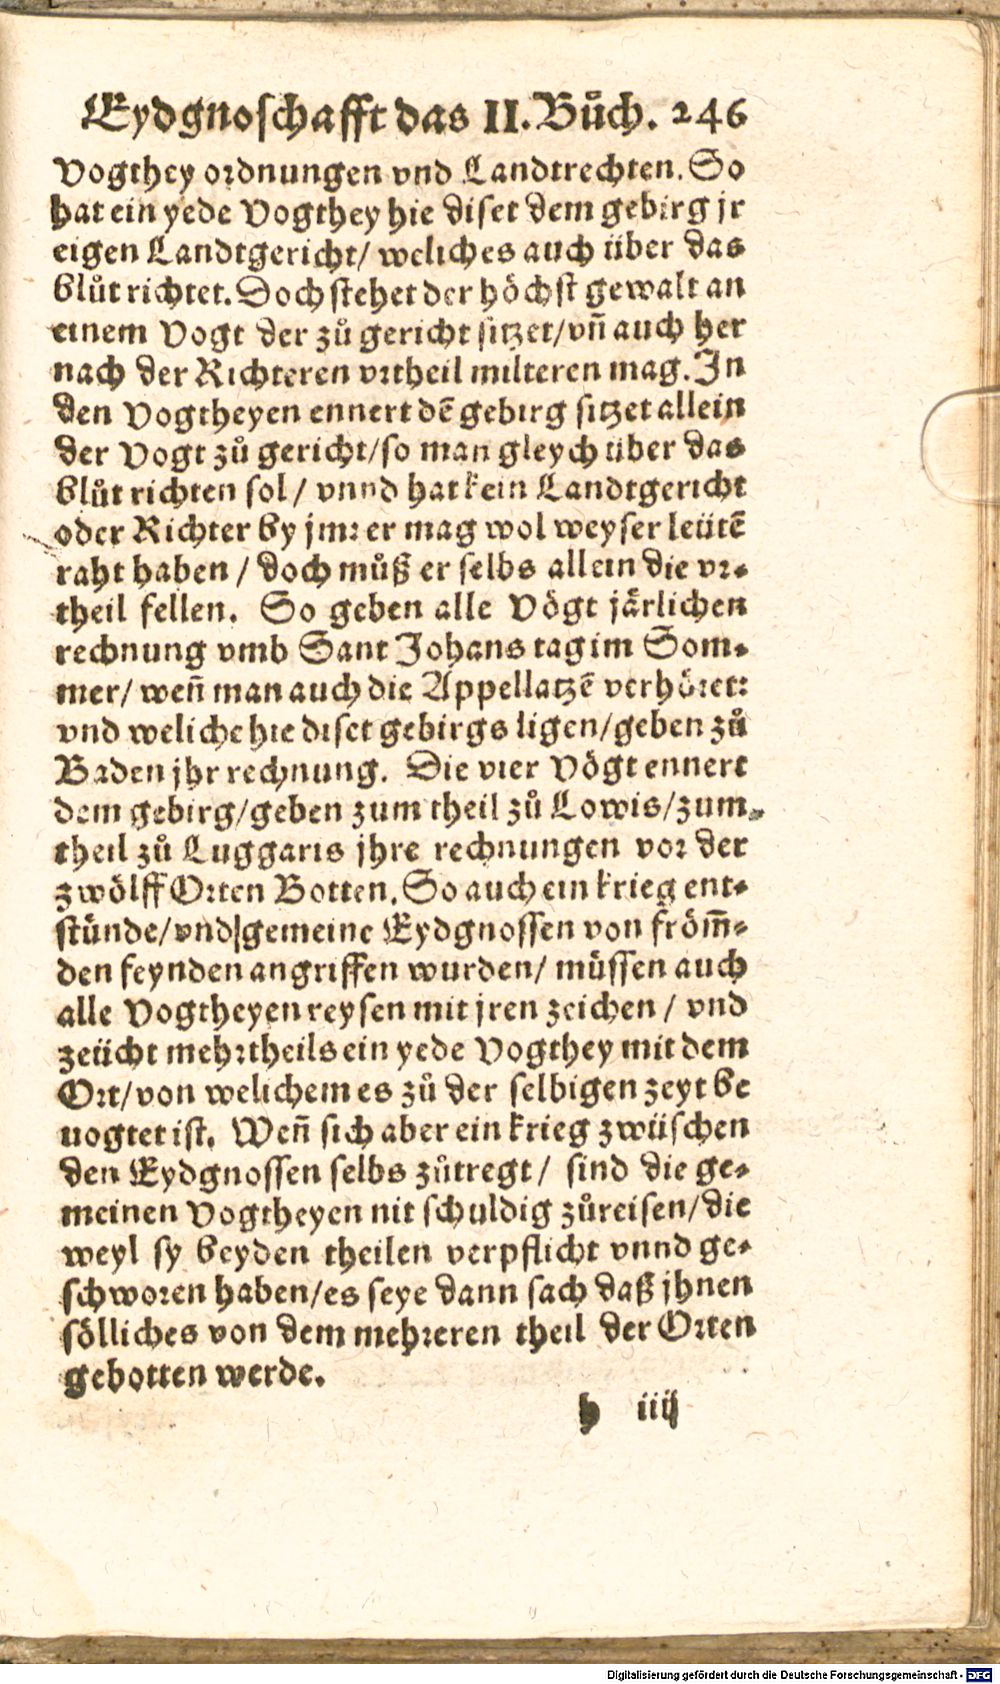 Eydgnoschafft das II. Bůch. 246
Vogthey ordnungen vnd Landtrechten. So
hat ein yede Vogthey hie diset dem gebirg jr
eigen Landtgericht/ weliches auch über das
blůt richtet. Doch stehet der höchst gewalt an
einem Vogt der zů gericht sitzet/ vñ auch her
nach der Richteren vrtheil milteren mag. In
den Vogtheyen ennert dẽ gebirg sitzet allein
der Vogt zů gericht/ so man gleych über das
blůt richten sol/ vnnd hat kein Landtgericht
oder Richter by jm: er mag wol weyser leütẽ
raht haben/ doch můß er selbs allein die vr-
theil fellen. So geben alle Vögt järlichen
rechnung vmb Sant Johans tag im Som-
mer/ weñ man auch die Appellatzẽ verhöret:
vnd weliche hie diset gebirgs ligen/ geben zů
Baden jhr rechnung. Die vier Vögt ennert
dem gebirg/ geben zum theil zů Lowis/ zum
theil zů Luggaris jhre rechnungen vor der
zwölff Orten Botten. So auch ein krieg ent-
stünde/ vnd gemeine Eydgnossen von fröm̃-
den feynden angriffen wurden/ müssen auch
alle Vogtheyen reysen mit jren zeichen/ vnd
zeücht mehrtheils ein yede Vogthey mit dem
Ort/ von welichem es zů der selbigen zeyt be
uogtet ist. Weñ sich aber ein krieg zwüschen
den Eydgnossen selbs zůtregt/ sind die ge-
meinen Vogtheyen nit schuldig zůreisen/ die
weyl sy beyden theilen verpflicht vnnd ge-
schworen haben/ es seye dann sach daß jhnen
sölliches von dem mehreren theil der Orten
gebotten werde.
h iiij
Digitalisierung gefördert durch die Deutsche Forschungsgemeinschaft - DFG